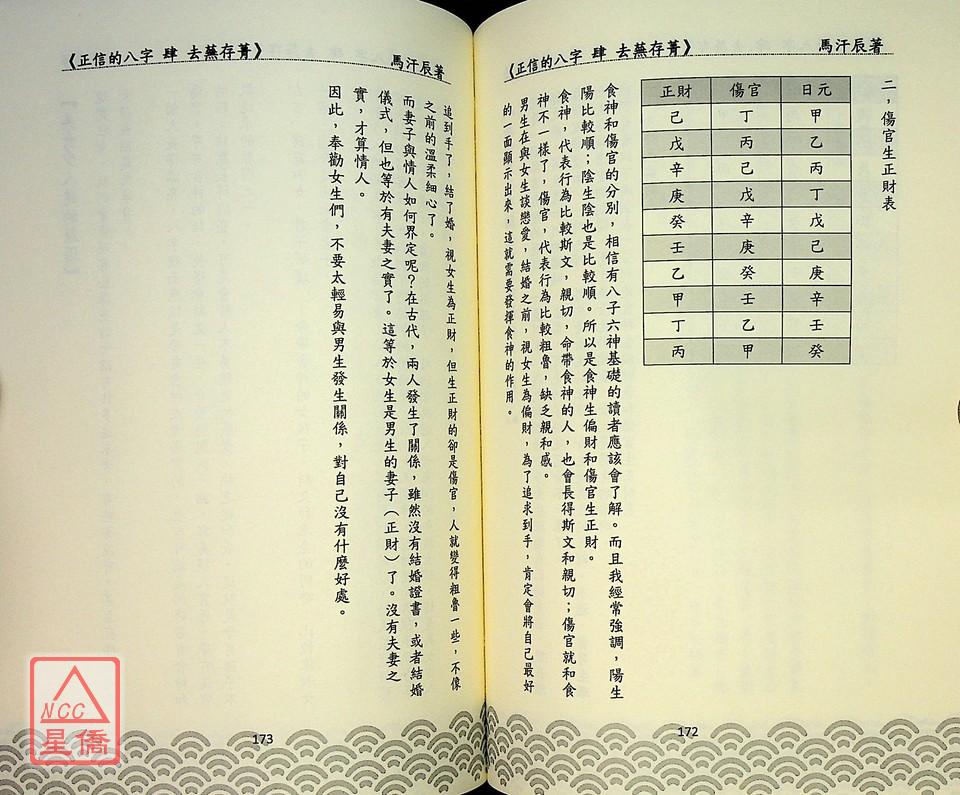 《正信的八字 肆 去蕪存菁》 馬汗辰著
二，傷官生正財表
正財 傷官 日元
己 丁 甲
戊 丙 乙
辛 己 丙
庚 戊 丁
癸 辛 戊
壬 庚 己
乙 癸 庚
甲 壬 辛
丁 乙 壬
丙 甲 癸
食神和傷官的分別，相信有八子六神基礎的讀者應該會了解。而且我經常強調，陽生
陽比較順；陰生陰也是比較順。所以是食神生偏財和傷官生正財。
食神，代表行為比較斯文，親切，命帶食神的人，也會長得斯文和親切；傷官就和食
神不一樣了，傷官，代表行為比較粗魯，缺乏親和感。
男生在與女生談戀愛，結婚之前，視女生為偏財，為了追求到手，肯定會將自己最好
的一面顯示出來，這就需要發揮食神的作用。
172
《正信的八字 肆 去蕪存菁》 馬汗辰著
追到手了，結了婚，視女生為正財，但生正財的卻是傷官，人就變得粗魯一些，不像
之前的溫柔細心了。
而妻子與情人如何界定呢？在古代，兩人發生了關係，雖然沒有結婚證書，或者結婚
儀式，但也等於有夫妻之實了。這等於女生是男生的妻子（正財）了。沒有夫妻之
實，才算情人。
因此，奉勸女生們，不要太輕易與男生發生關係，對自己沒有什麼好處。
173
NCC
星僑